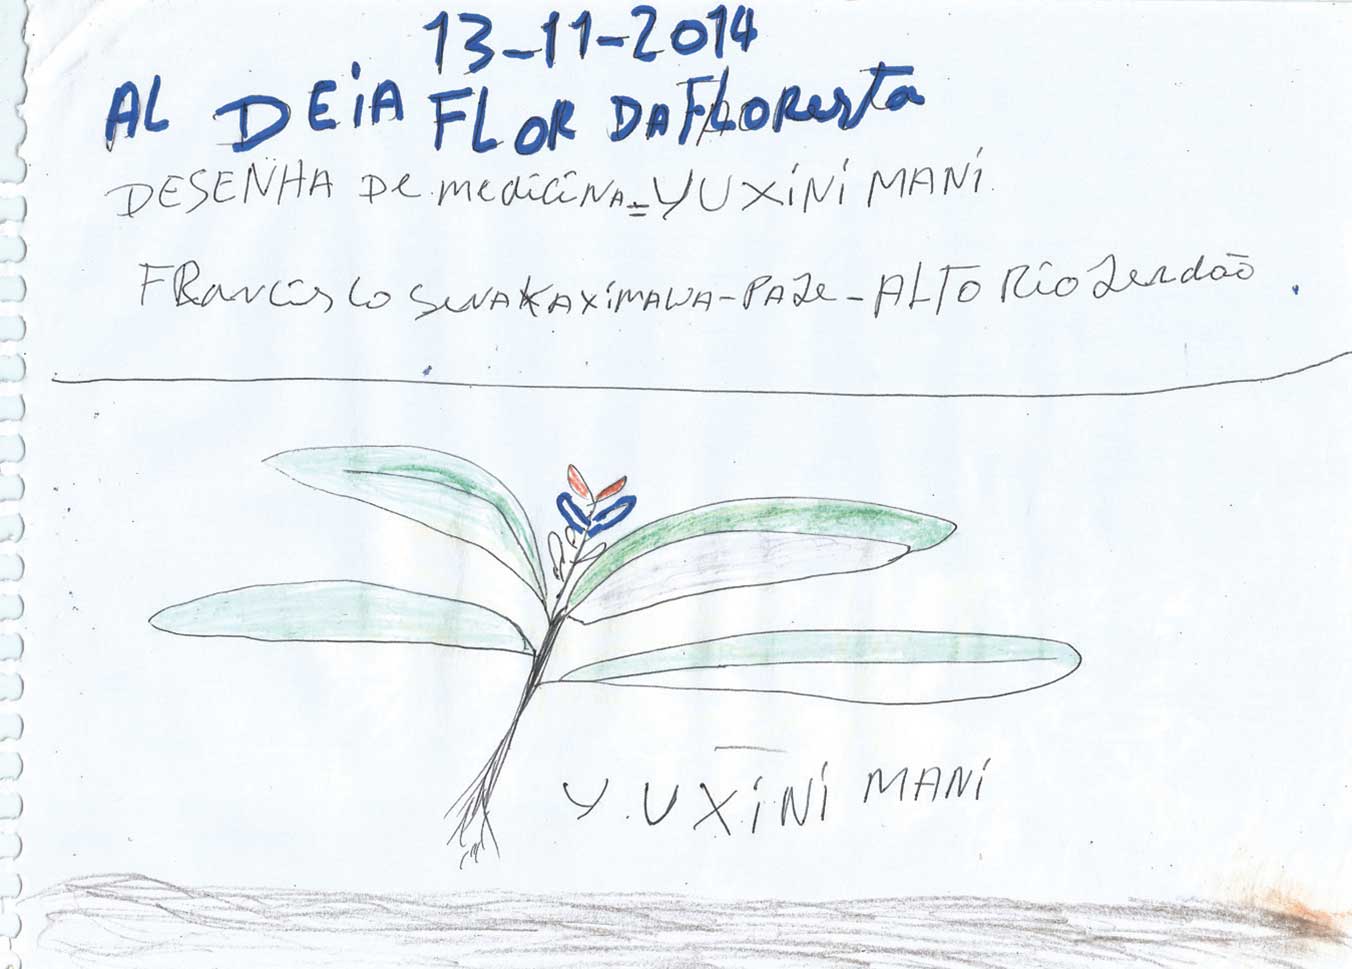 13-11-2014
AL DEIA FLOR DA FLOResta
DESENHA De medicina = YUXiNi MANi
FRancisco SenAKAXiMAWA - PAJe - ALTO Rio Jerdão
Y.UXiNi MANi